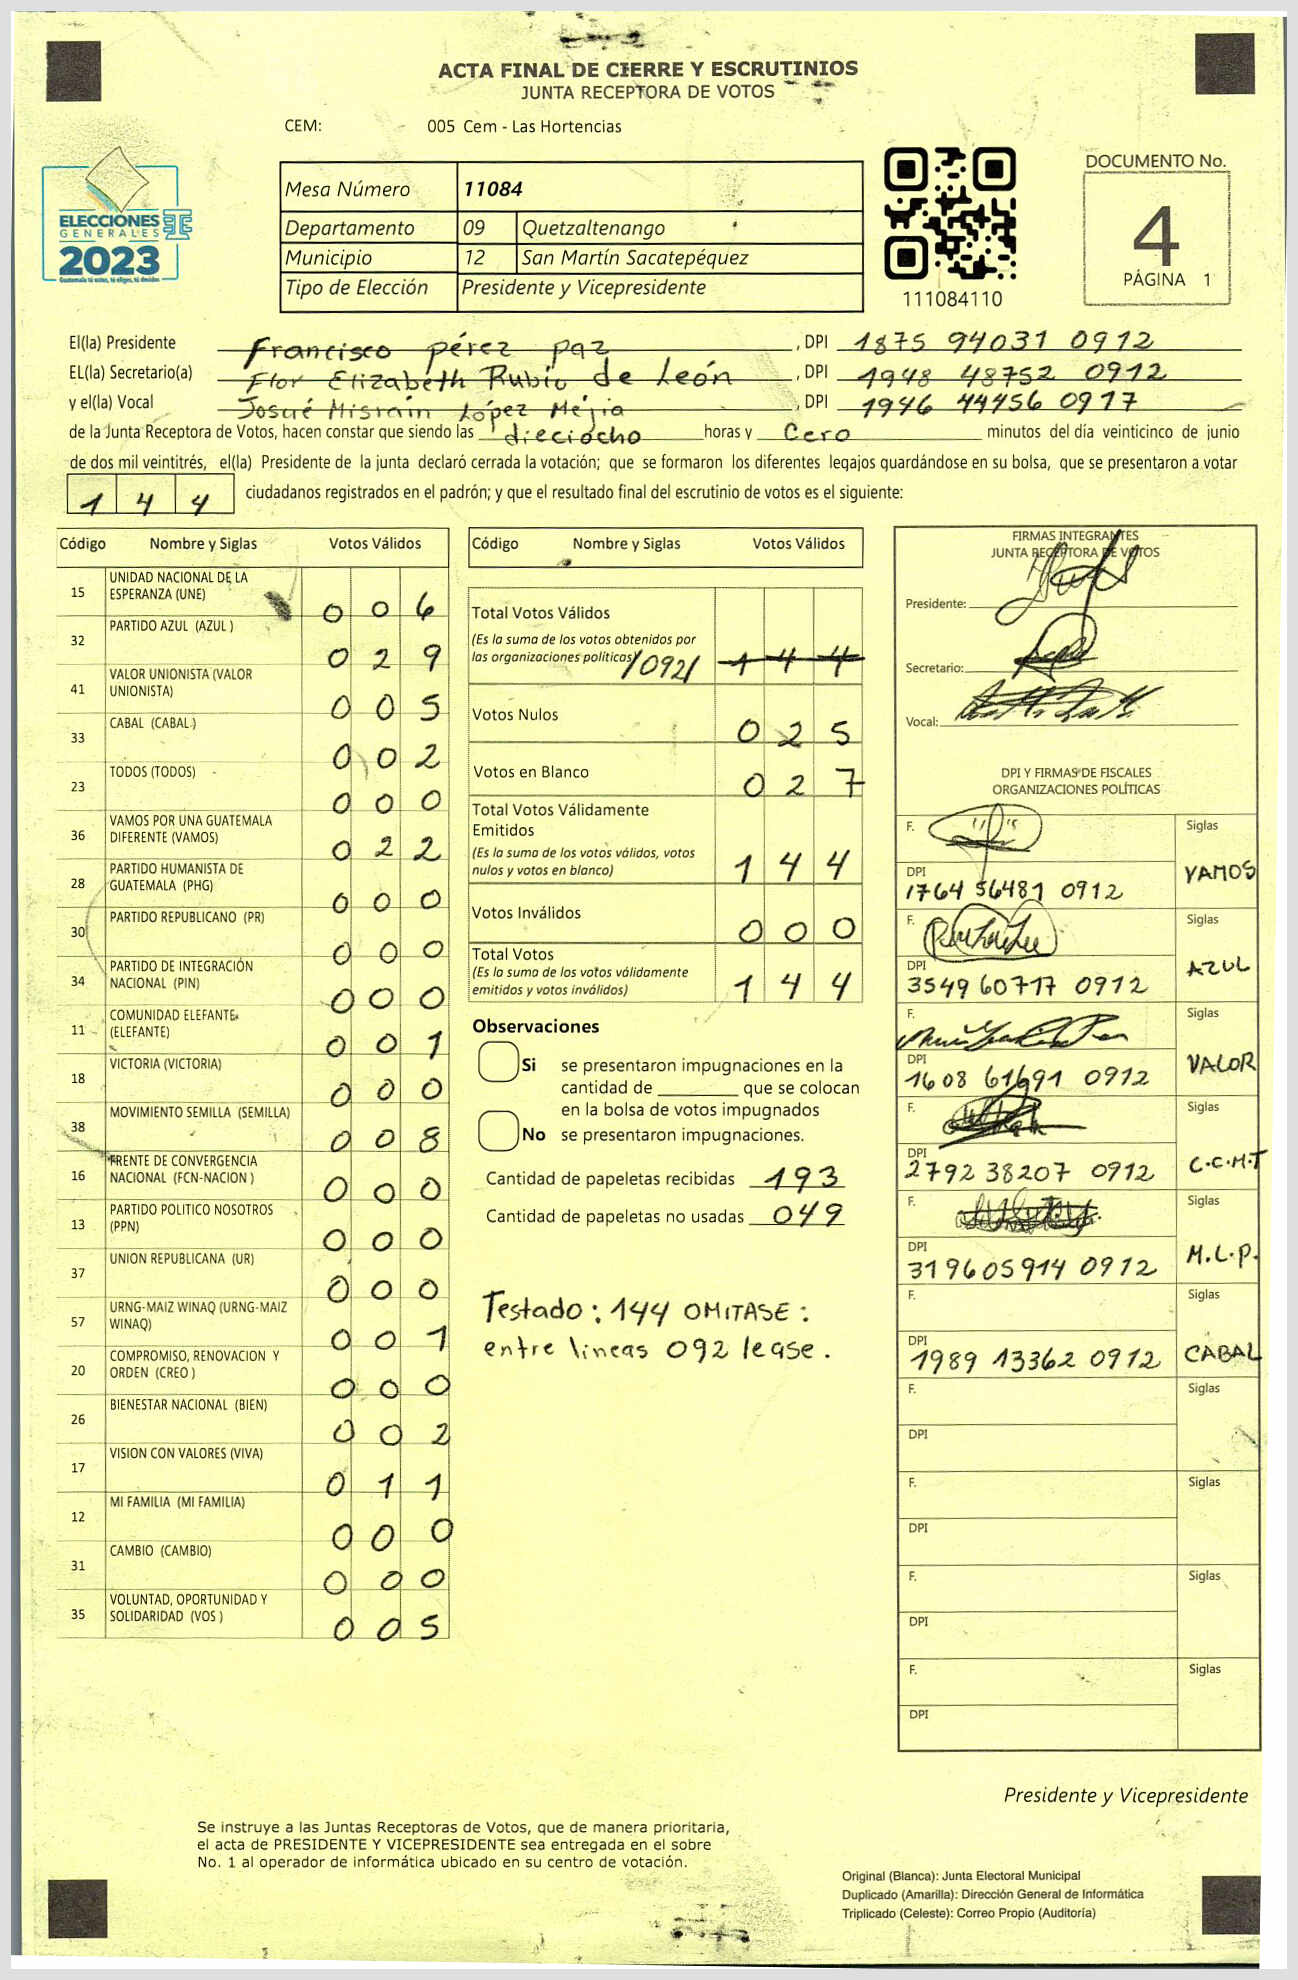 ACTA FINAL DE CIERRE Y ESCRUTINIOS
JUNTA RECEPTORA DE VOTOS
CEM: 005 Cem - Las Hortencias
ELECCIONES
GENERALES
2023
Guatemala tú votas, tú eliges, tú decides
Mesa Número 11084
Departamento 09 Quetzaltenango
Municipio 12 San Martín Sacatepéquez
Tipo de Elección Presidente y Vicepresidente
111084110
DOCUMENTO No.
4
PÁGINA 1
El(la) Presidente Francisco pérez paz, DPI 1875 94031 0912
EL(la) Secretario(a) Flor Elizabeth Rubio de León, DPI 1948 48752 0912
y el(la) Vocal Josué Misraín López Mejía, DPI 1946 44456 0917
de la Junta Receptora de Votos, hacen constar que siendo las dieciocho horas y Cero minutos del día veinticinco de junio
de dos mil veintitrés, el(la) Presidente de la junta declaró cerrada la votación; que se formaron los diferentes legajos guardándose en su bolsa, que se presentaron a votar
144 ciudadanos registrados en el padrón; y que el resultado final del escrutinio de votos es el siguiente:
Código Nombre y Siglas Votos Válidos
15 UNIDAD NACIONAL DE LA ESPERANZA (UNE) 006
32 PARTIDO AZUL (AZUL ) 029
41 VALOR UNIONISTA (VALOR UNIONISTA) 005
33 CABAL (CABAL) 002
23 TODOS (TODOS) 000
36 VAMOS POR UNA GUATEMALA DIFERENTE (VAMOS) 022
28 PARTIDO HUMANISTA DE GUATEMALA (PHG) 000
30 PARTIDO REPUBLICANO (PR) 000
34 PARTIDO DE INTEGRACIÓN NACIONAL (PIN) 000
11 COMUNIDAD ELEFANTE (ELEFANTE) 001
18 VICTORIA (VICTORIA) 000
38 MOVIMIENTO SEMILLA (SEMILLA) 008
16 FRENTE DE CONVERGENCIA NACIONAL (FCN-NACION ) 000
13 PARTIDO POLITICO NOSOTROS (PPN) 000
37 UNION REPUBLICANA (UR) 000
57 URNG-MAIZ WINAQ (URNG-MAIZ WINAQ) 001
20 COMPROMISO, RENOVACION Y ORDEN (CREO ) 000
26 BIENESTAR NACIONAL (BIEN) 002
17 VISION CON VALORES (VIVA) 011
12 MI FAMILIA (MI FAMILIA) 000
31 CAMBIO (CAMBIO) 000
35 VOLUNTAD, OPORTUNIDAD Y SOLIDARIDAD (VOS ) 005
Código Nombre y Siglas Votos Válidos
Total Votos Válidos
(Es la suma de los votos obtenidos por
las organizaciones políticas) /092/ 144
Votos Nulos 025
Votos en Blanco 027
Total Votos Válidamente
Emitidos
(Es la suma de los votos válidos, votos
nulos y votos en blanco) 144
Votos Inválidos 000
Total Votos
(Es la suma de los votos válidamente
emitidos y votos inválidos) 144
Observaciones
Si se presentaron impugnaciones en la
cantidad de ________ que se colocan
en la bolsa de votos impugnados
No se presentaron impugnaciones.
Cantidad de papeletas recibidas 193
Cantidad de papeletas no usadas 049
Testado: 144 OMITASE:
entre lineas 092 lease.
FIRMAS INTEGRANTES
JUNTA RECEPTORA DE VOTOS
Presidente:
Secretario:
Vocal:
DPI Y FIRMAS DE FISCALES
ORGANIZACIONES POLÍTICAS
F. Siglas
DPI 1764 56481 0912 VAMOS
F. Siglas
DPI 3549 60717 0912 AZUL
F. Siglas
DPI 1608 61691 0912 VALOR
F. Siglas
DPI 2792 38207 0912 C.C.M.T
F. Siglas
DPI 3196 05914 0912 M.L.P.
F. Siglas
DPI 1989 13362 0912 CABAL
F. Siglas
DPI
F. Siglas
DPI
F. Siglas
DPI
F. Siglas
DPI
Presidente y Vicepresidente
Se instruye a las Juntas Receptoras de Votos, que de manera prioritaria,
el acta de PRESIDENTE Y VICEPRESIDENTE sea entregada en el sobre
No. 1 al operador de informática ubicado en su centro de votación.
Original (Blanca): Junta Electoral Municipal
Duplicado (Amarilla): Dirección General de Informática
Triplicado (Celeste): Correo Propio (Auditoría)